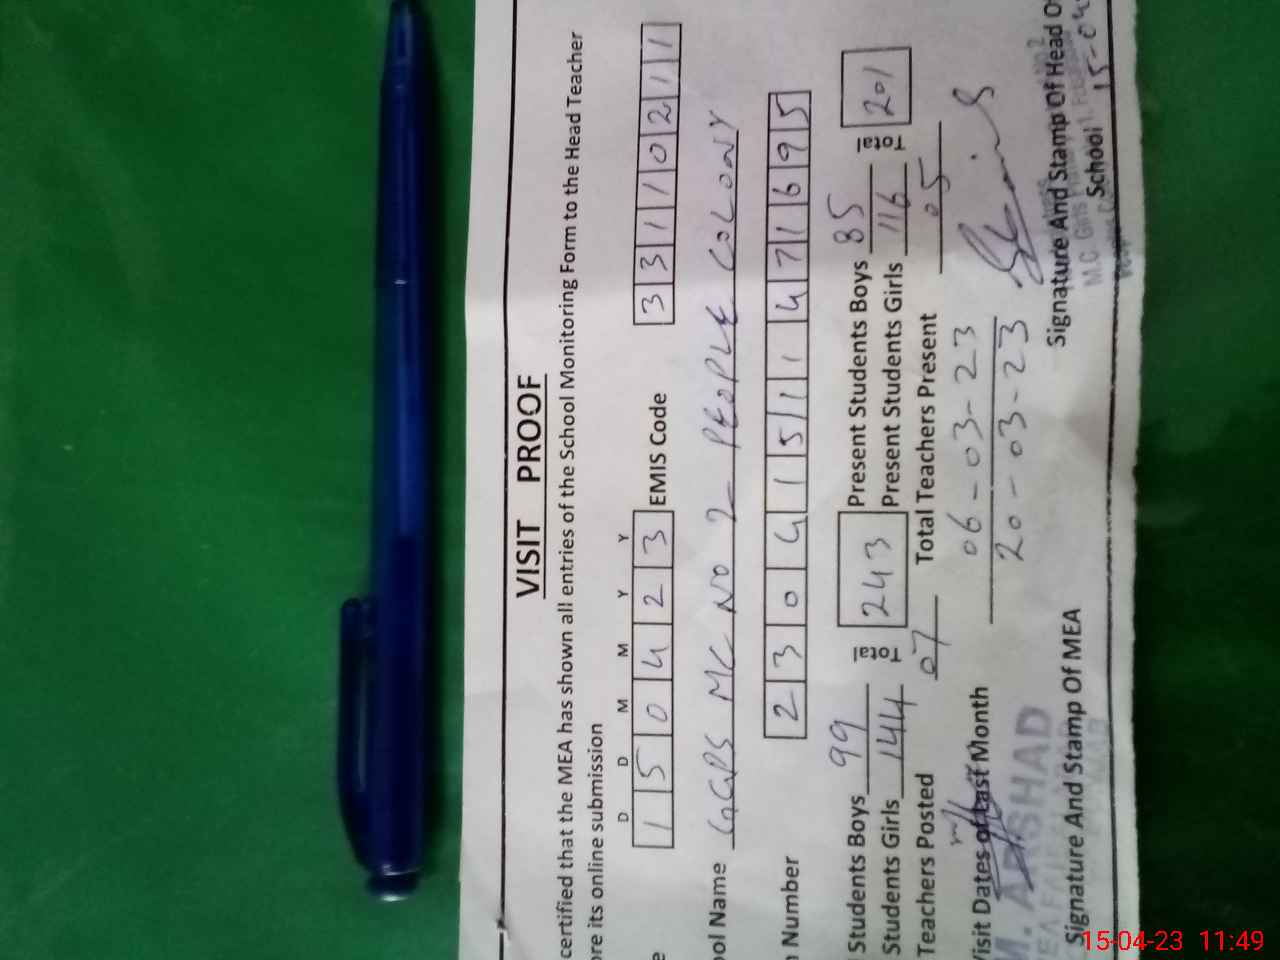 VISIT PROOF
certified that the MEA has shown all entries of the School Monitoring Form to the Head Teacher
ore its online submission
D D M M Y Y
e 1 5 0 4 2 3 EMIS Code 3 3 1 1 0 2 1 1
ool Name GGPS MC NO 2 PEOPLE COLONY
n Number 2 3 0 4 1 5 1 1 4 7 1 6 9 5
Students Boys 99 Total 243 Present Students Boys 85 Total 201
Students Girls 144 Present Students Girls 116
Teachers Posted 07 Total Teachers Present 05
Visit Dates of Last Month 06-03-23
20-03-23
M. ARSHAD
Signature And Stamp Of MEA
Signature And Stamp Of Head O
School
M.C. Girls
15-04
15-04-23 11:49